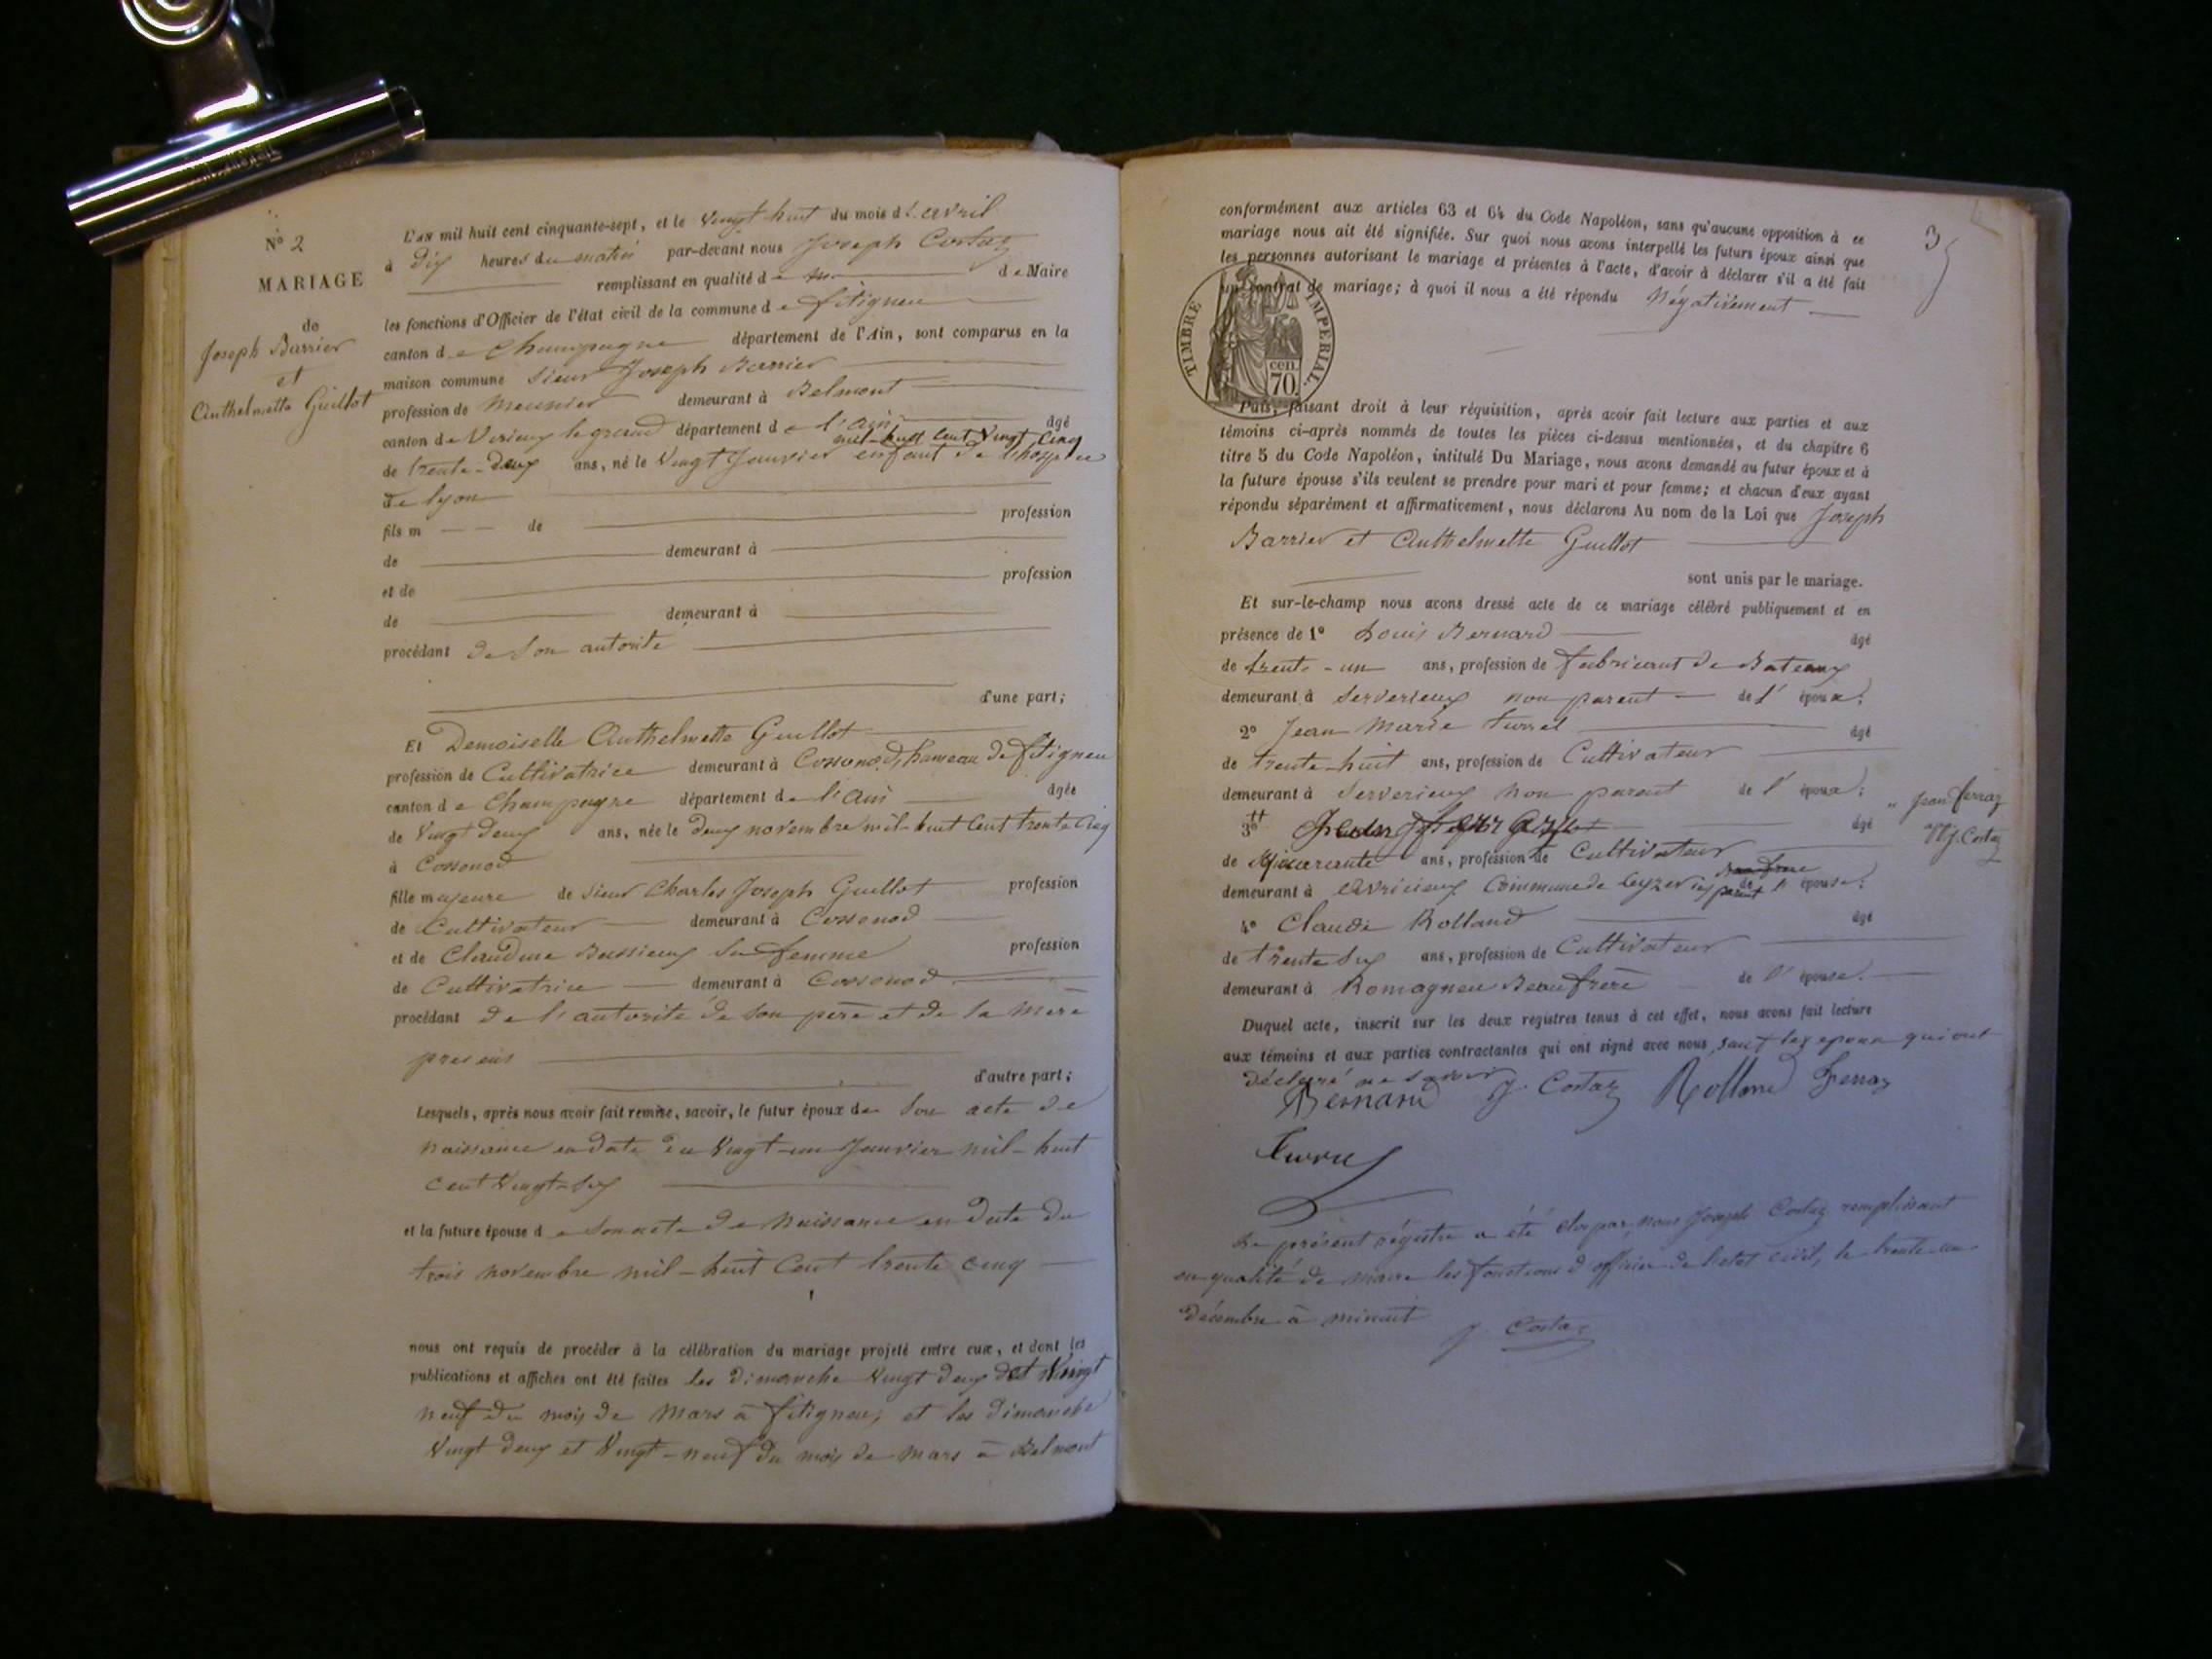 N° 2
MARIAGE
de
Joseph Barrier
et
Anthelmette Guillot
L'an mil huit cent cinquante-sept, et le vingt huit du mois d'avril
à dix heures du matin par-devant nous Joseph Costaz
remplissant en qualité de Maire
les fonctions d'Officier de l'état civil de la commune de fitignieu
canton de Champagne département de l'Ain, sont comparus en la
maison commune Sieur Joseph Barrier
profession de Meunier demeurant à Belmont
canton de Virieux le grand département de l'Ain âgé
mil-huit cent vingt cinq
de trente-deux ans, né le vingt Janvier enfant de l'hospice
de lyon
fils m de profession
de demeurant à
et de profession
de demeurant à
procédant de son autorité
d'une part;
Et Demoiselle Anthelmette Guillot
profession de Cultivatrice demeurant à Cossonod, hameau de fitignieu
canton de Champagne département de l'Ain âgée
de vingt deux ans, née le deux novembre mil-huit cent trente cinq
à Cossonod
fille majeure de sieur Charles Joseph Guillot profession
de Cultivateur demeurant à Cossonod
et de Claudine Bussieux sa femme profession
de Cultivatrice demeurant à Cossonod
procédant de l'autorité de son père et de sa mère
presens
d'autre part;
Lesquels, après nous avoir fait remise, savoir, le futur époux de Son acte de
naissance en date du vingt-un Janvier mil-huit
cent vingt-six
et la future épouse de Son acte de naissance en date du
trois novembre mil-huit cent trente cinq
nous ont requis de procéder à la célébration du mariage projeté entre eux, et dont les
publications et affiches ont été faites les dimanche vingt deux et vingt
neuf du mois de Mars à fitignieu, et les dimanche
vingt deux et vingt-neuf du mois de mars à Belmont
3
conformément aux articles 63 et 64 du Code Napoléon, sans qu'aucune opposition à ce
mariage nous ait été signifiée. Sur quoi nous avons interpellé les futurs époux ainsi que
les personnes autorisant le mariage et présentes à l'acte, d'avoir à déclarer s'il a été fait
un contrat de mariage; à quoi il nous a été répondu Négativement
TIMBRE IMPERIAL.
cen.
70
Puis, faisant droit à leur réquisition, après avoir fait lecture aux parties et aux
témoins ci-après nommés de toutes les pièces ci-dessus mentionnées, et du chapitre 6
titre 5 du Code Napoléon, intitulé Du Mariage, nous avons demandé au futur époux et à
la future épouse s'ils veulent se prendre pour mari et pour femme; et chacun d'eux ayant
répondu séparément et affirmativement, nous déclarons Au nom de la Loi que Joseph
Barrier et Anthelmette Guillot
sont unis par le mariage.
Et sur-le-champ nous avons dressé acte de ce mariage célébré publiquement et en
présence de 1° Louis Bernard âgé
de trente-un ans, profession de fabricant de Bateaux
demeurant à Serverieux non parent de l'époux;
2° Jean Marie turrel âgé
de trente-huit ans, profession de Cultivateur
demeurant à Serverieux non parent de l'époux;
" Jean ferraz
J. Costaz
3° âgé
de Quarante ans, profession de Cultivateur
demeurant à Avricieux Commune de Ceyzerieu parent de l'épouse;
4° Claude Rolland âgé
de trente six ans, profession de Cultivateur
demeurant à Romagnieu Beaufrère de l'épouse.
Duquel acte, inscrit sur les deux registres tenus à cet effet, nous avons fait lecture
aux témoins et aux parties contractantes qui ont signé avec nous sauf les epoux qui ont
déclaré ne savoir
Bernard J. Costaz Rolland ferraz
turrel
Le présent régistre a été clos par nous Joseph Costaz remplissant
en qualité de maire les fonctions d'officier de l'etat civil, le trente un
décembre à minuit
J. Costaz